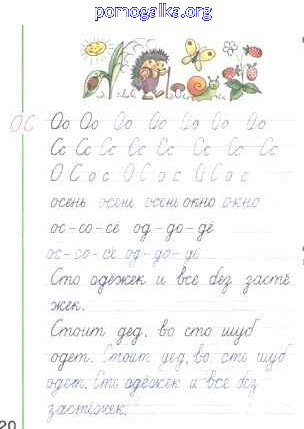 pomogalka.org
ОС Оо Оо Оо Оо Оо Оо Оо
Сс Сс Сс Сс Сс Сс Сс Сс
О С о с О С о с О С о с
осень осень осень окно окно
ос-со-сё од-до-дё
ос-со-сё од-до-дё
Сто одёжек и все без застё
жек.
Стоит дед, во сто шуб
одет. Стоит дед, во сто шуб
одет. Сто одёжек и все без
застёжек.
20